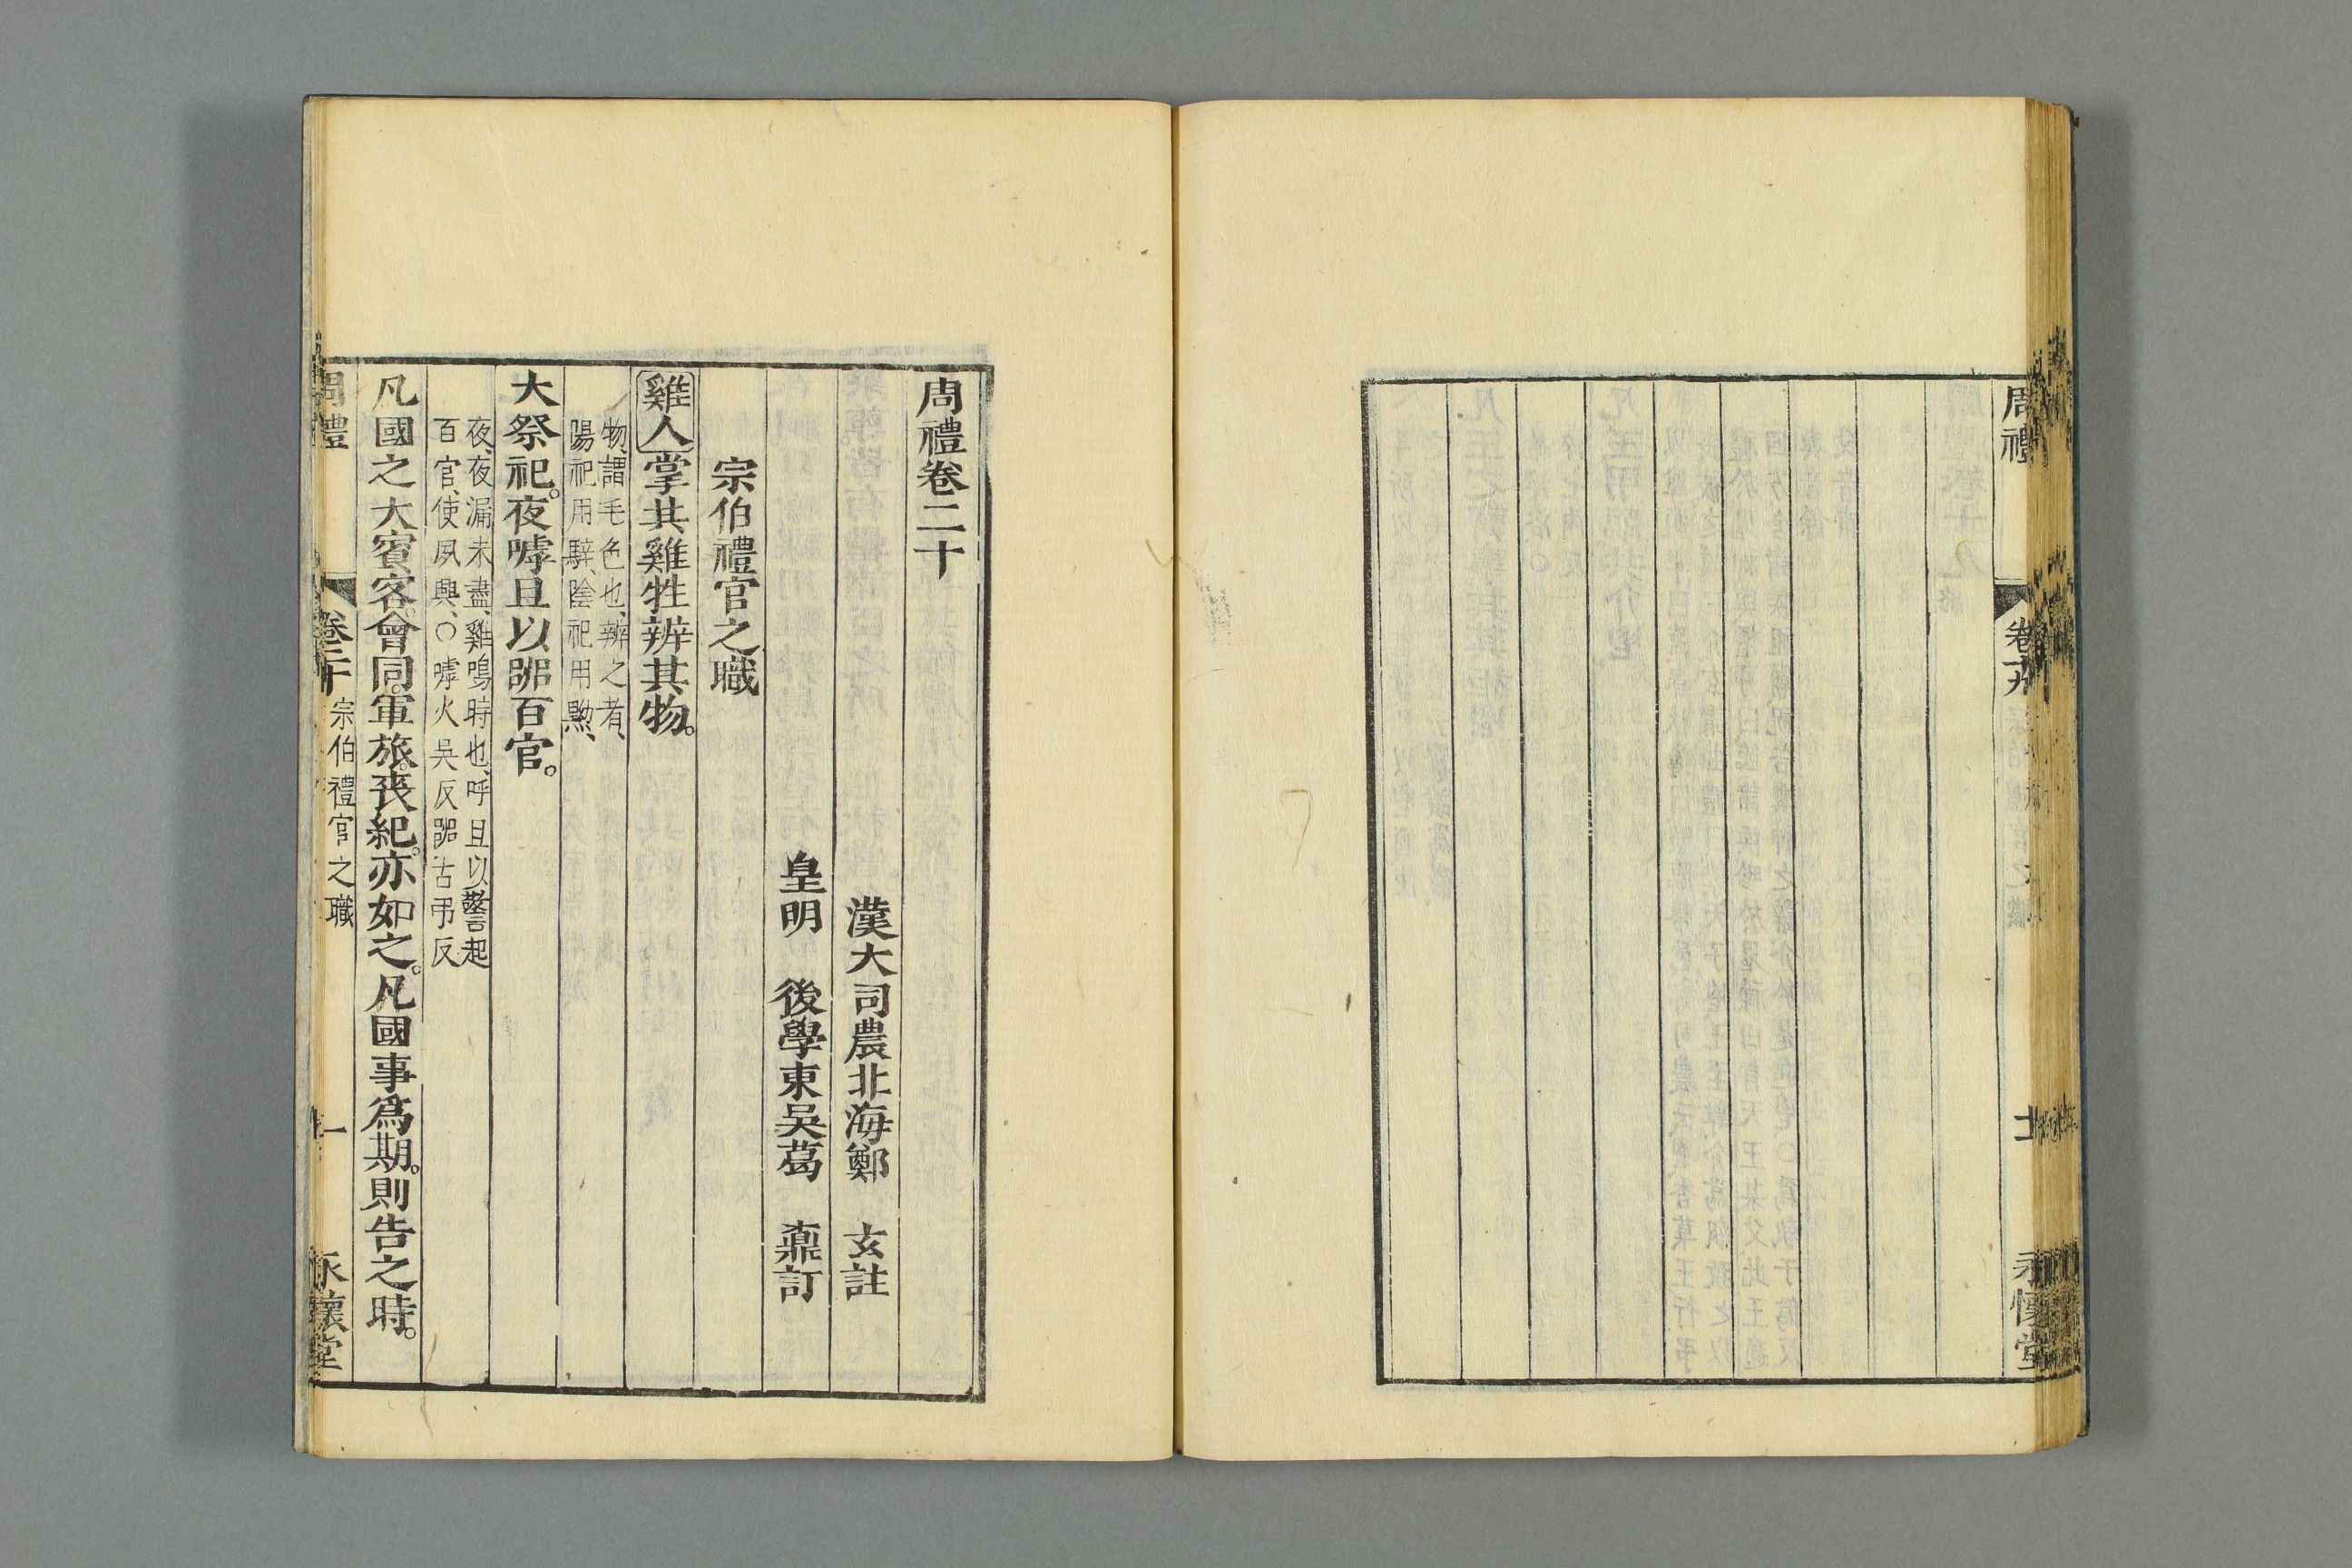 周禮
卷十九
永懷堂
周禮卷二十
漢大司農北海鄭　玄註
皇明　後學東吳葛　鼒訂
宗伯禮官之職
雞人掌其雞牲辨其物。
物、謂毛色也、辨之者、
陽祀用騂、陰祀用黝、
大祭祀。夜嘑旦以嘂百官。
夜、夜漏未盡、雞鳴時也、呼旦以警起
百官、使夙興、○嘑火吳反嘂古弔反
凡國之大賓客。會同。軍旅。喪紀。亦如之。凡國事爲期。則告之時。
周禮
卷二十
宗伯禮官之職
一
永懷堂